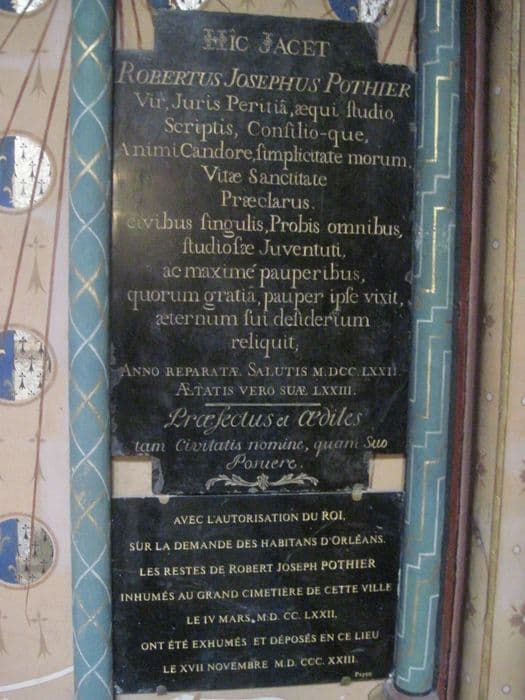 Hîc Jacet
Robertus Josephus Pothier
Vir, Juris Peritiâ, æqui ſtudio,
Scriptis, Conſilio-que,
Animi Candore, ſimplicitate morum,
Vitæ Sanctitate
Præclarus.
civibus ſingulis, Probis omnibus,
ſtudioſæ Juventuti,
ac maxime pauperibus,
quorum gratiâ, pauper ipſe vixit,
æternum ſui deſiderium
reliquit;
Anno reparatæ Salutis M.DCC.LXXII.
Ætatis vero suæ LXXIII.
Præfectus et ædiles
tam Civitatis nomine, quam Suo
Posuere.
AVEC L'AUTORISATION DU ROI,
SUR LA DEMANDE DES HABITANS D'ORLÉANS.
LES RESTES DE ROBERT JOSEPH POTHIER
INHUMÉS AU GRAND CIMETIÈRE DE CETTE VILLE
LE IV MARS, M.D. CC. LXXII,
ONT ÉTÉ EXHUMÉS ET DÉPOSÉS EN CE LIEU
LE XVII NOVEMBRE M.D. CCC. XXIII.